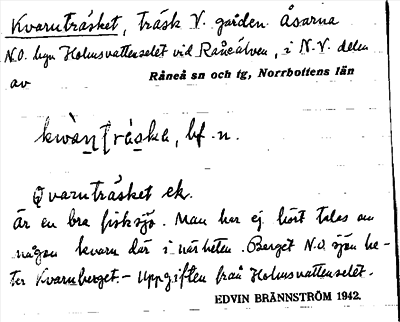 Kvarnträsket, träsk V. gården Åsarna
N.O. byn Holmsvattenselet vid Råneälven, i N.V. delen
av Råneå sn och tg, Norrbottens län
kwàn̠t̠rǻska, bf. n.
Qvarnträsket ek.
Är en bra fisksjö. Man har ej hört talas om
någon kvarn där i närheten. Berget N.O. sjön he-
ter Kvarnberget. - Uppgiften från Holmsvattenselet.
EDVIN BRÄNNSTRÖM 1942.